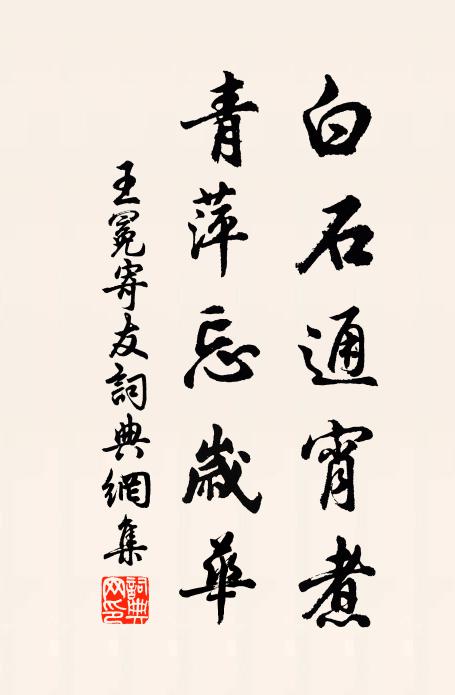 白石通宵煮
青萍忘歲華
王冕寄友詞典網集
詞典網印